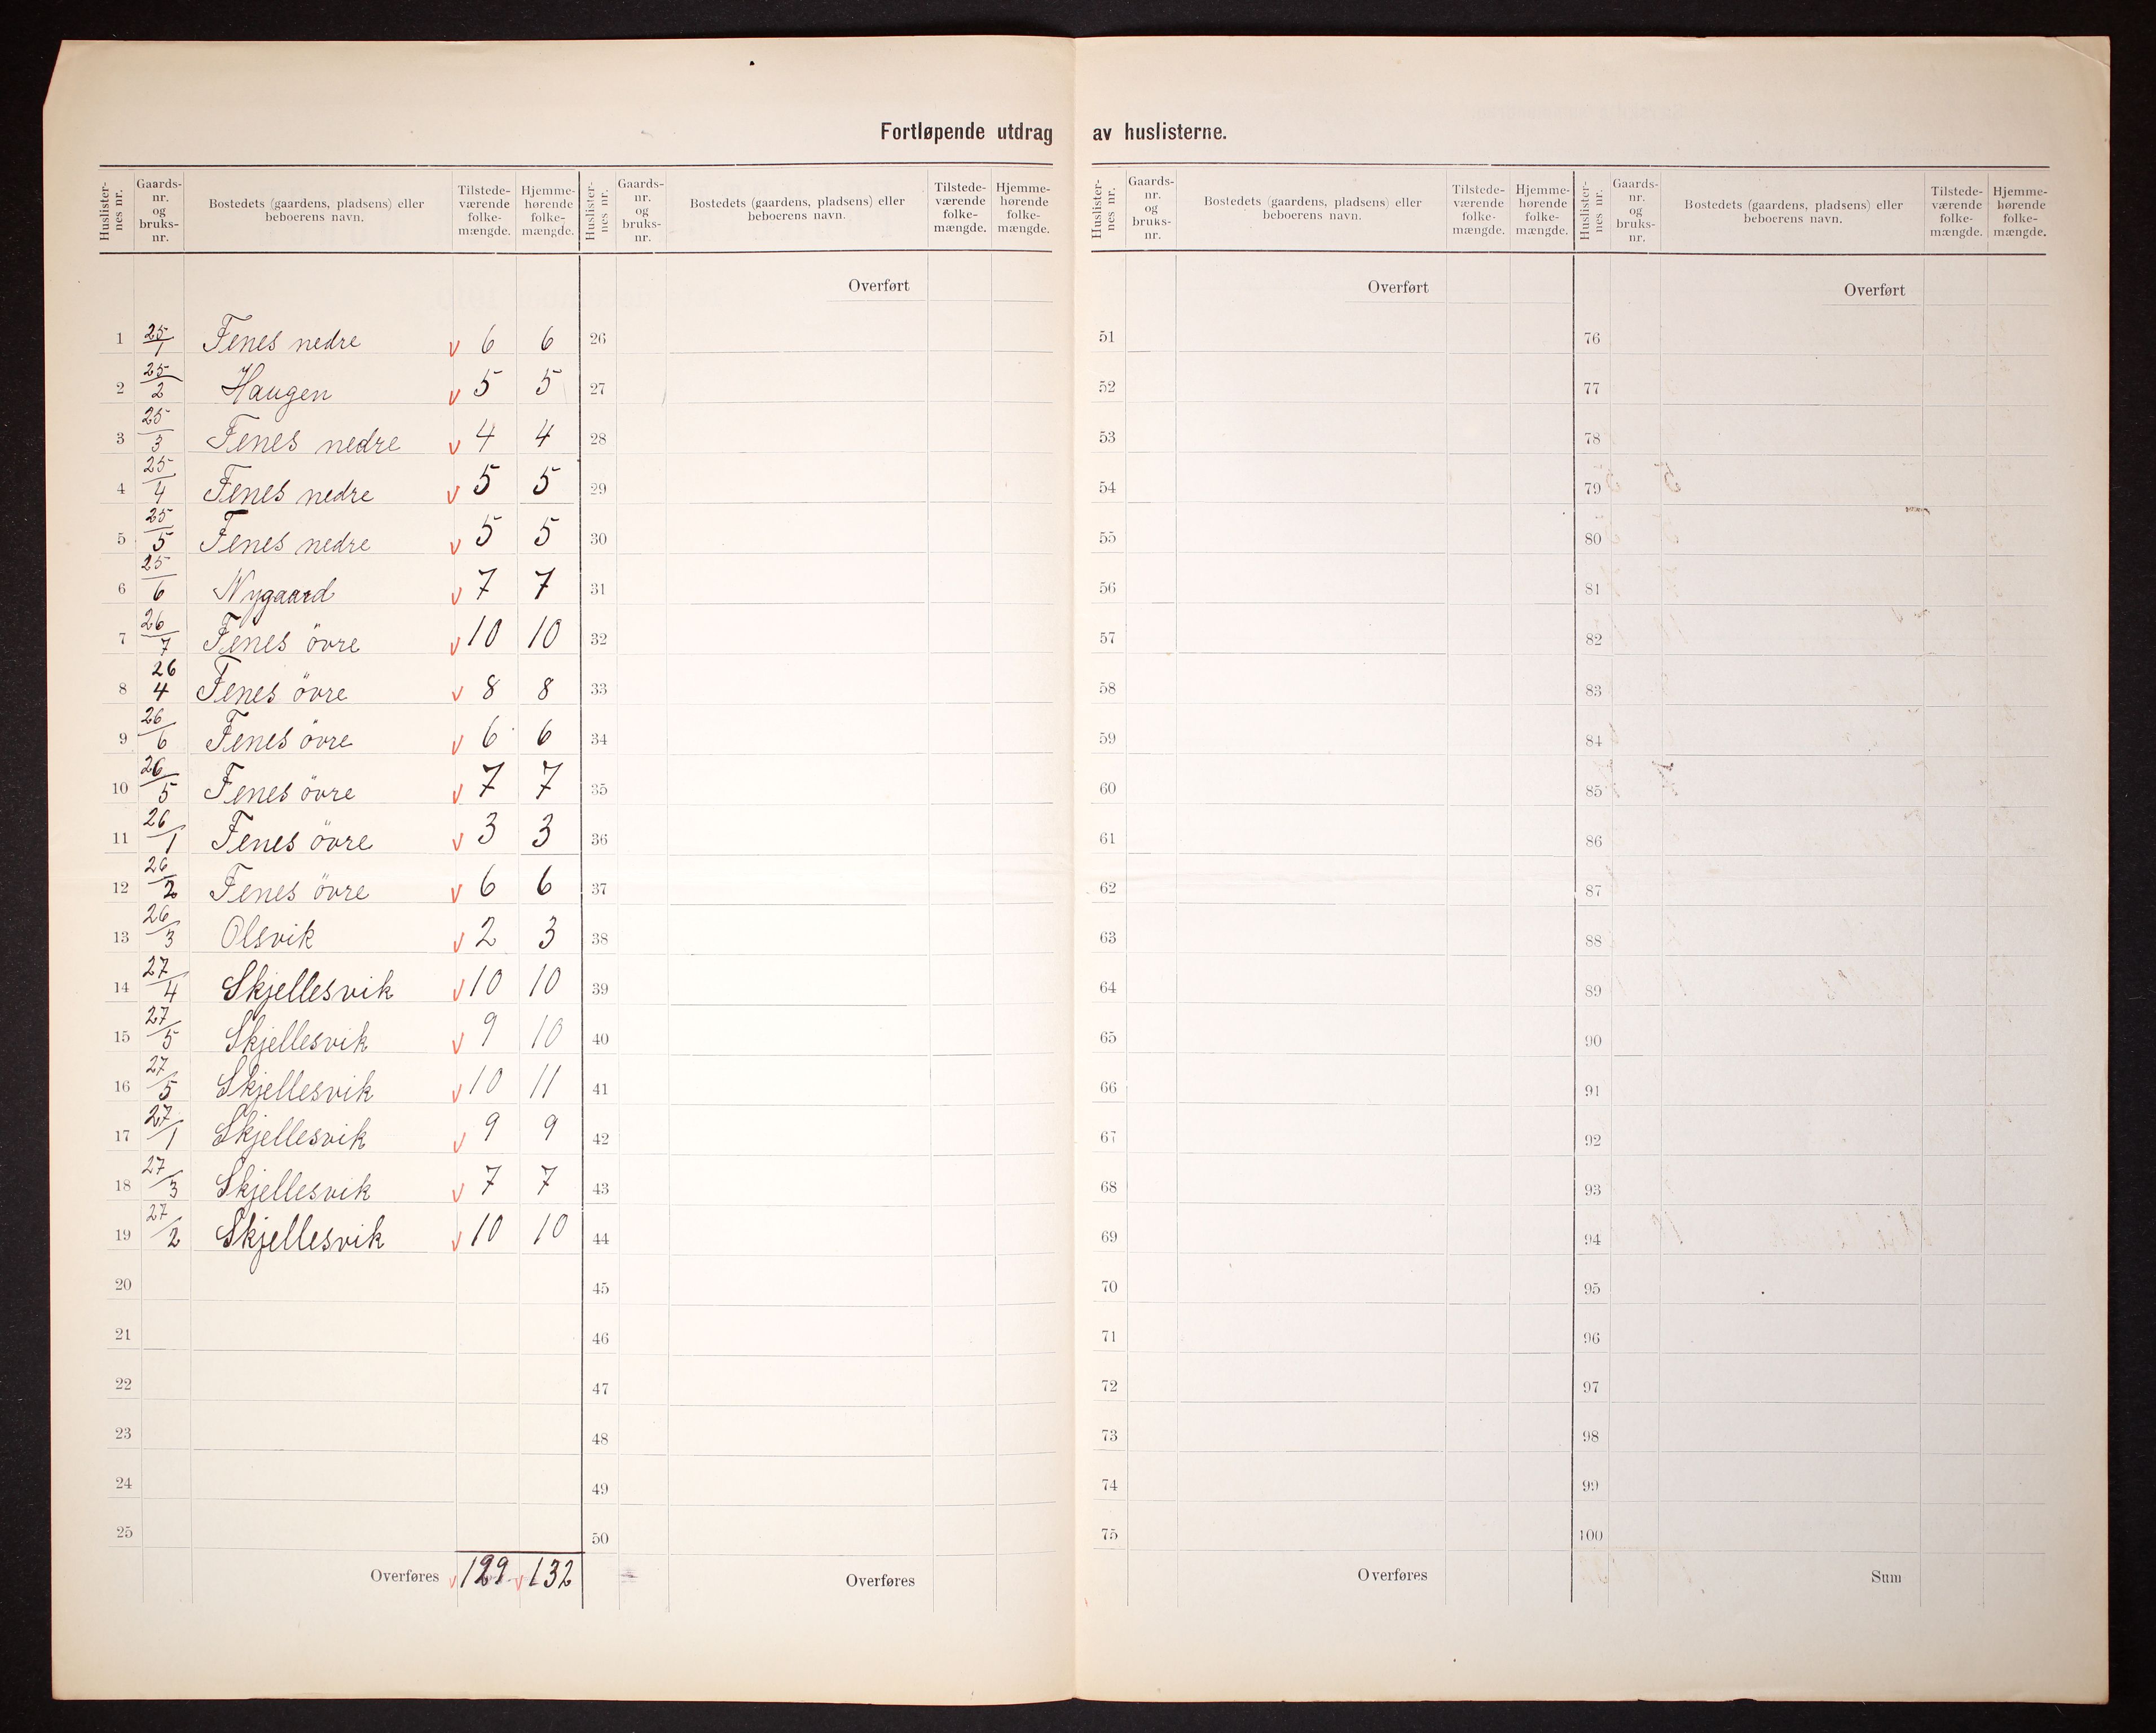 Fortløpende utdrag av huslisterne.
Huslisternes nr. | Gaards-nr. og bruks-nr. | Bostedets (gaardens, pladsens) eller beboerens navn. | Tilstedeværende folke-mængde. | Hjemmehørende folke-mængde.
1 25/1 Fenes nedre v 6 6
2 25/2 Haugen v 5 5
3 25/3 Fenes nedre v 4 4
4 25/4 Fenes nedre v 5 5
5 25/5 Fenes nedre v 5 5
6 25/6 Nygaard v 7 7
7 26/7 Fenes övre v 10 10
8 26/4 Fenes övre v 8 8
9 26/6 Fenes övre v 6 6
10 26/5 Fenes övre v 7 7
11 26/1 Fenes övre v 3 3
12 26/2 Fenes övre v 6 6
13 26/3 Olsvik v 2 3
14 27/4 Skjellesvik v 10 10
15 27/5 Skjellesvik v 9 10
16 27/5 Skjellesvik v 10 11
17 27/1 Skjellesvik v 9 9
18 27/3 Skjellesvik v 7 7
19 27/2 Skjellesvik v 10 10
20
21
22
23
24
25
Overføres v 129 v 132
Huslisternes nr. | Gaards-nr. og bruks-nr. | Bostedets (gaardens, pladsens) eller beboerens navn. | Tilstedeværende folke-mængde. | Hjemmehørende folke-mængde.
Overført
26
27
28
29
30
31
32
33
34
35
36
37
38
39
40
41
42
43
44
45
46
47
48
49
50
Overføres
Huslisternes nr. | Gaards-nr. og bruks-nr. | Bostedets (gaardens, pladsens) eller beboerens navn. | Tilstedeværende folke-mængde. | Hjemmehørende folke-mængde.
Overført
51
52
53
54
55
56
57
58
59
60
61
62
63
64
65
66
67
68
69
70
71
72
73
74
75
Overføres
Huslisternes nr. | Gaards-nr. og bruks-nr. | Bostedets (gaardens, pladsens) eller beboerens navn. | Tilstedeværende folke-mængde. | Hjemmehørende folke-mængde.
Overført
76
77
78
79
80
81
82
83
84
85
86
87
88
89
90
91
92
93
94
95
96
97
98
99
100
Sum